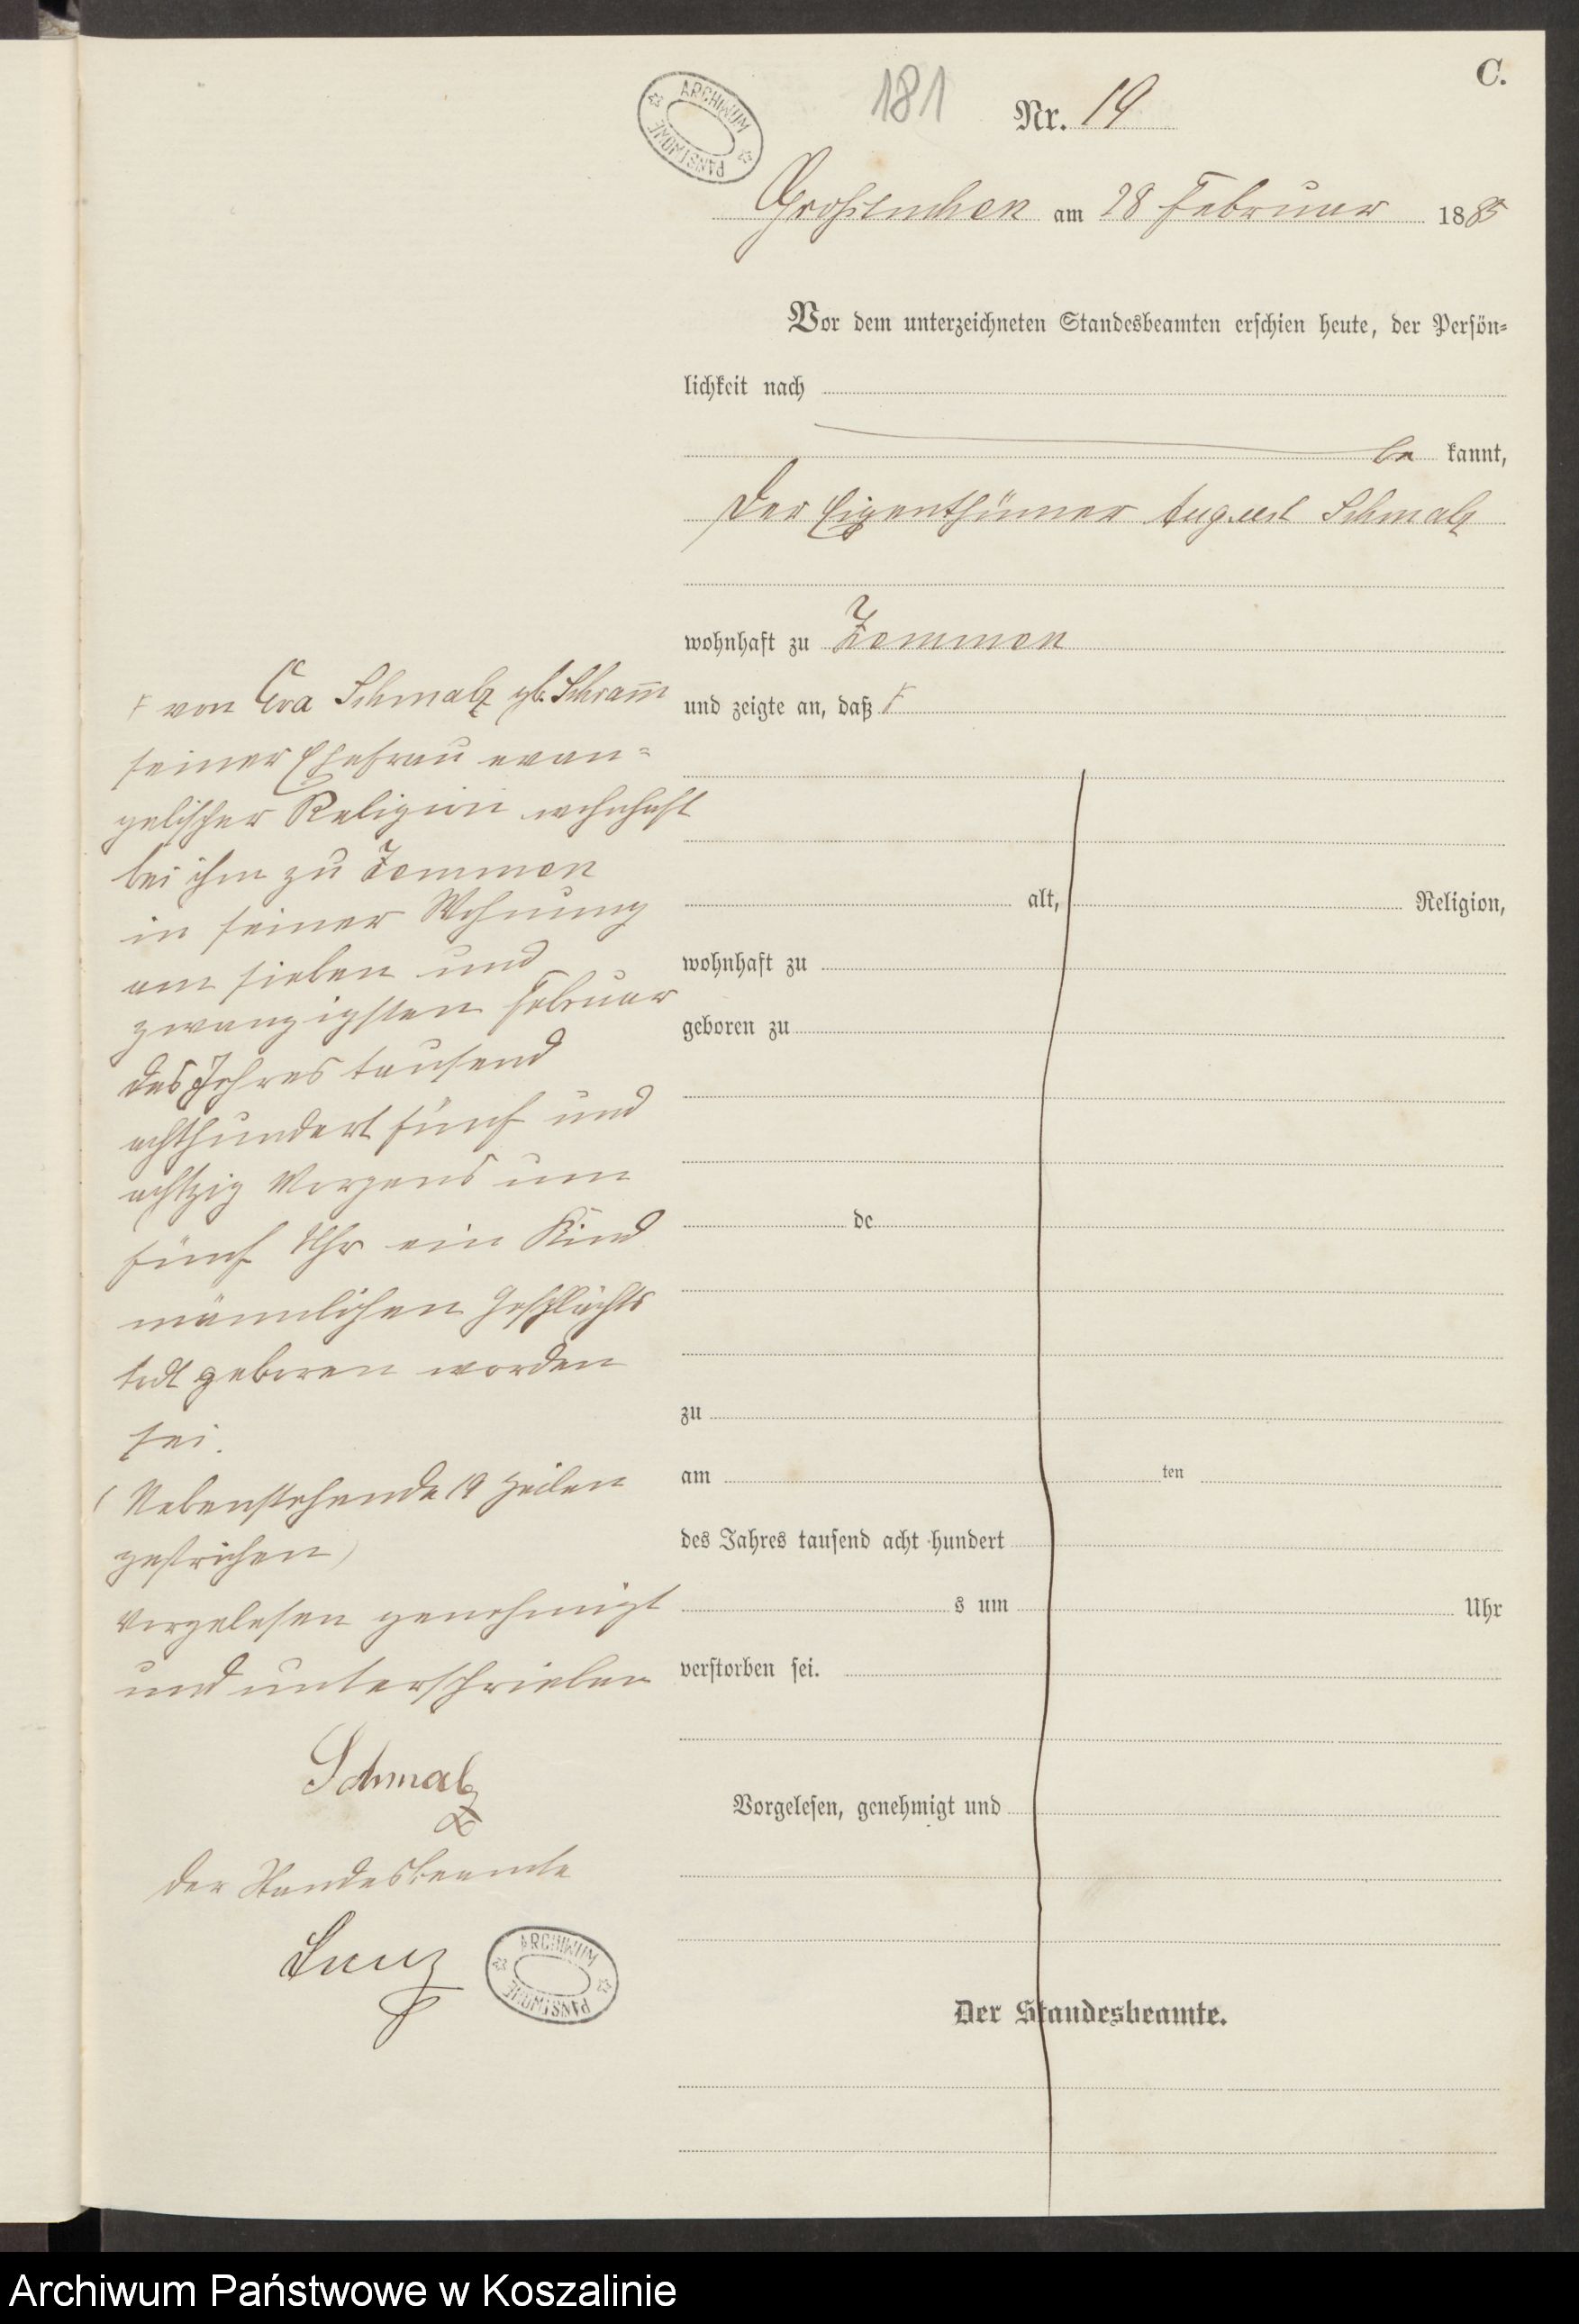 C.
181
Nr. 19
ARCHIWUM PAŃSTWOWE
am 28 Februar 1885
Vor dem unterzeichneten Standesbeamten erschien heute, der Persön-
lichkeit nach
be kannt,
der Eigenthümer August Schmalz
wohnhaft zu Zemmen
und zeigte an, daß F
F von Eva Schmalz gb. Schram̄
seiner Ehefrau evan-
gelischer Religion wohnhaft
bei ihm zu Zemmen
in seiner Wohnung
am sieben und
zwanzigsten Februar
des Jahres tausend
achthundert fünf und
achtzig Morgens um
fünf Uhr ein Kind
männlichen Geschlechts
todt geboren worden
sei.
(Nebenstehende 19 Zeilen
gestrichen)
Vorgelesen genehmigt
und unterschrieben
Schmalz
der Standesbeamte
ARCHIWUM PAŃSTWOWE
alt, Religion,
wohnhaft zu
geboren zu
de
zu
am ten
des Jahres tausend acht hundert
s um Uhr
verstorben sei.
Vorgelesen, genehmigt und
Der Standesbeamte.
Archiwum Państwowe w Koszalinie